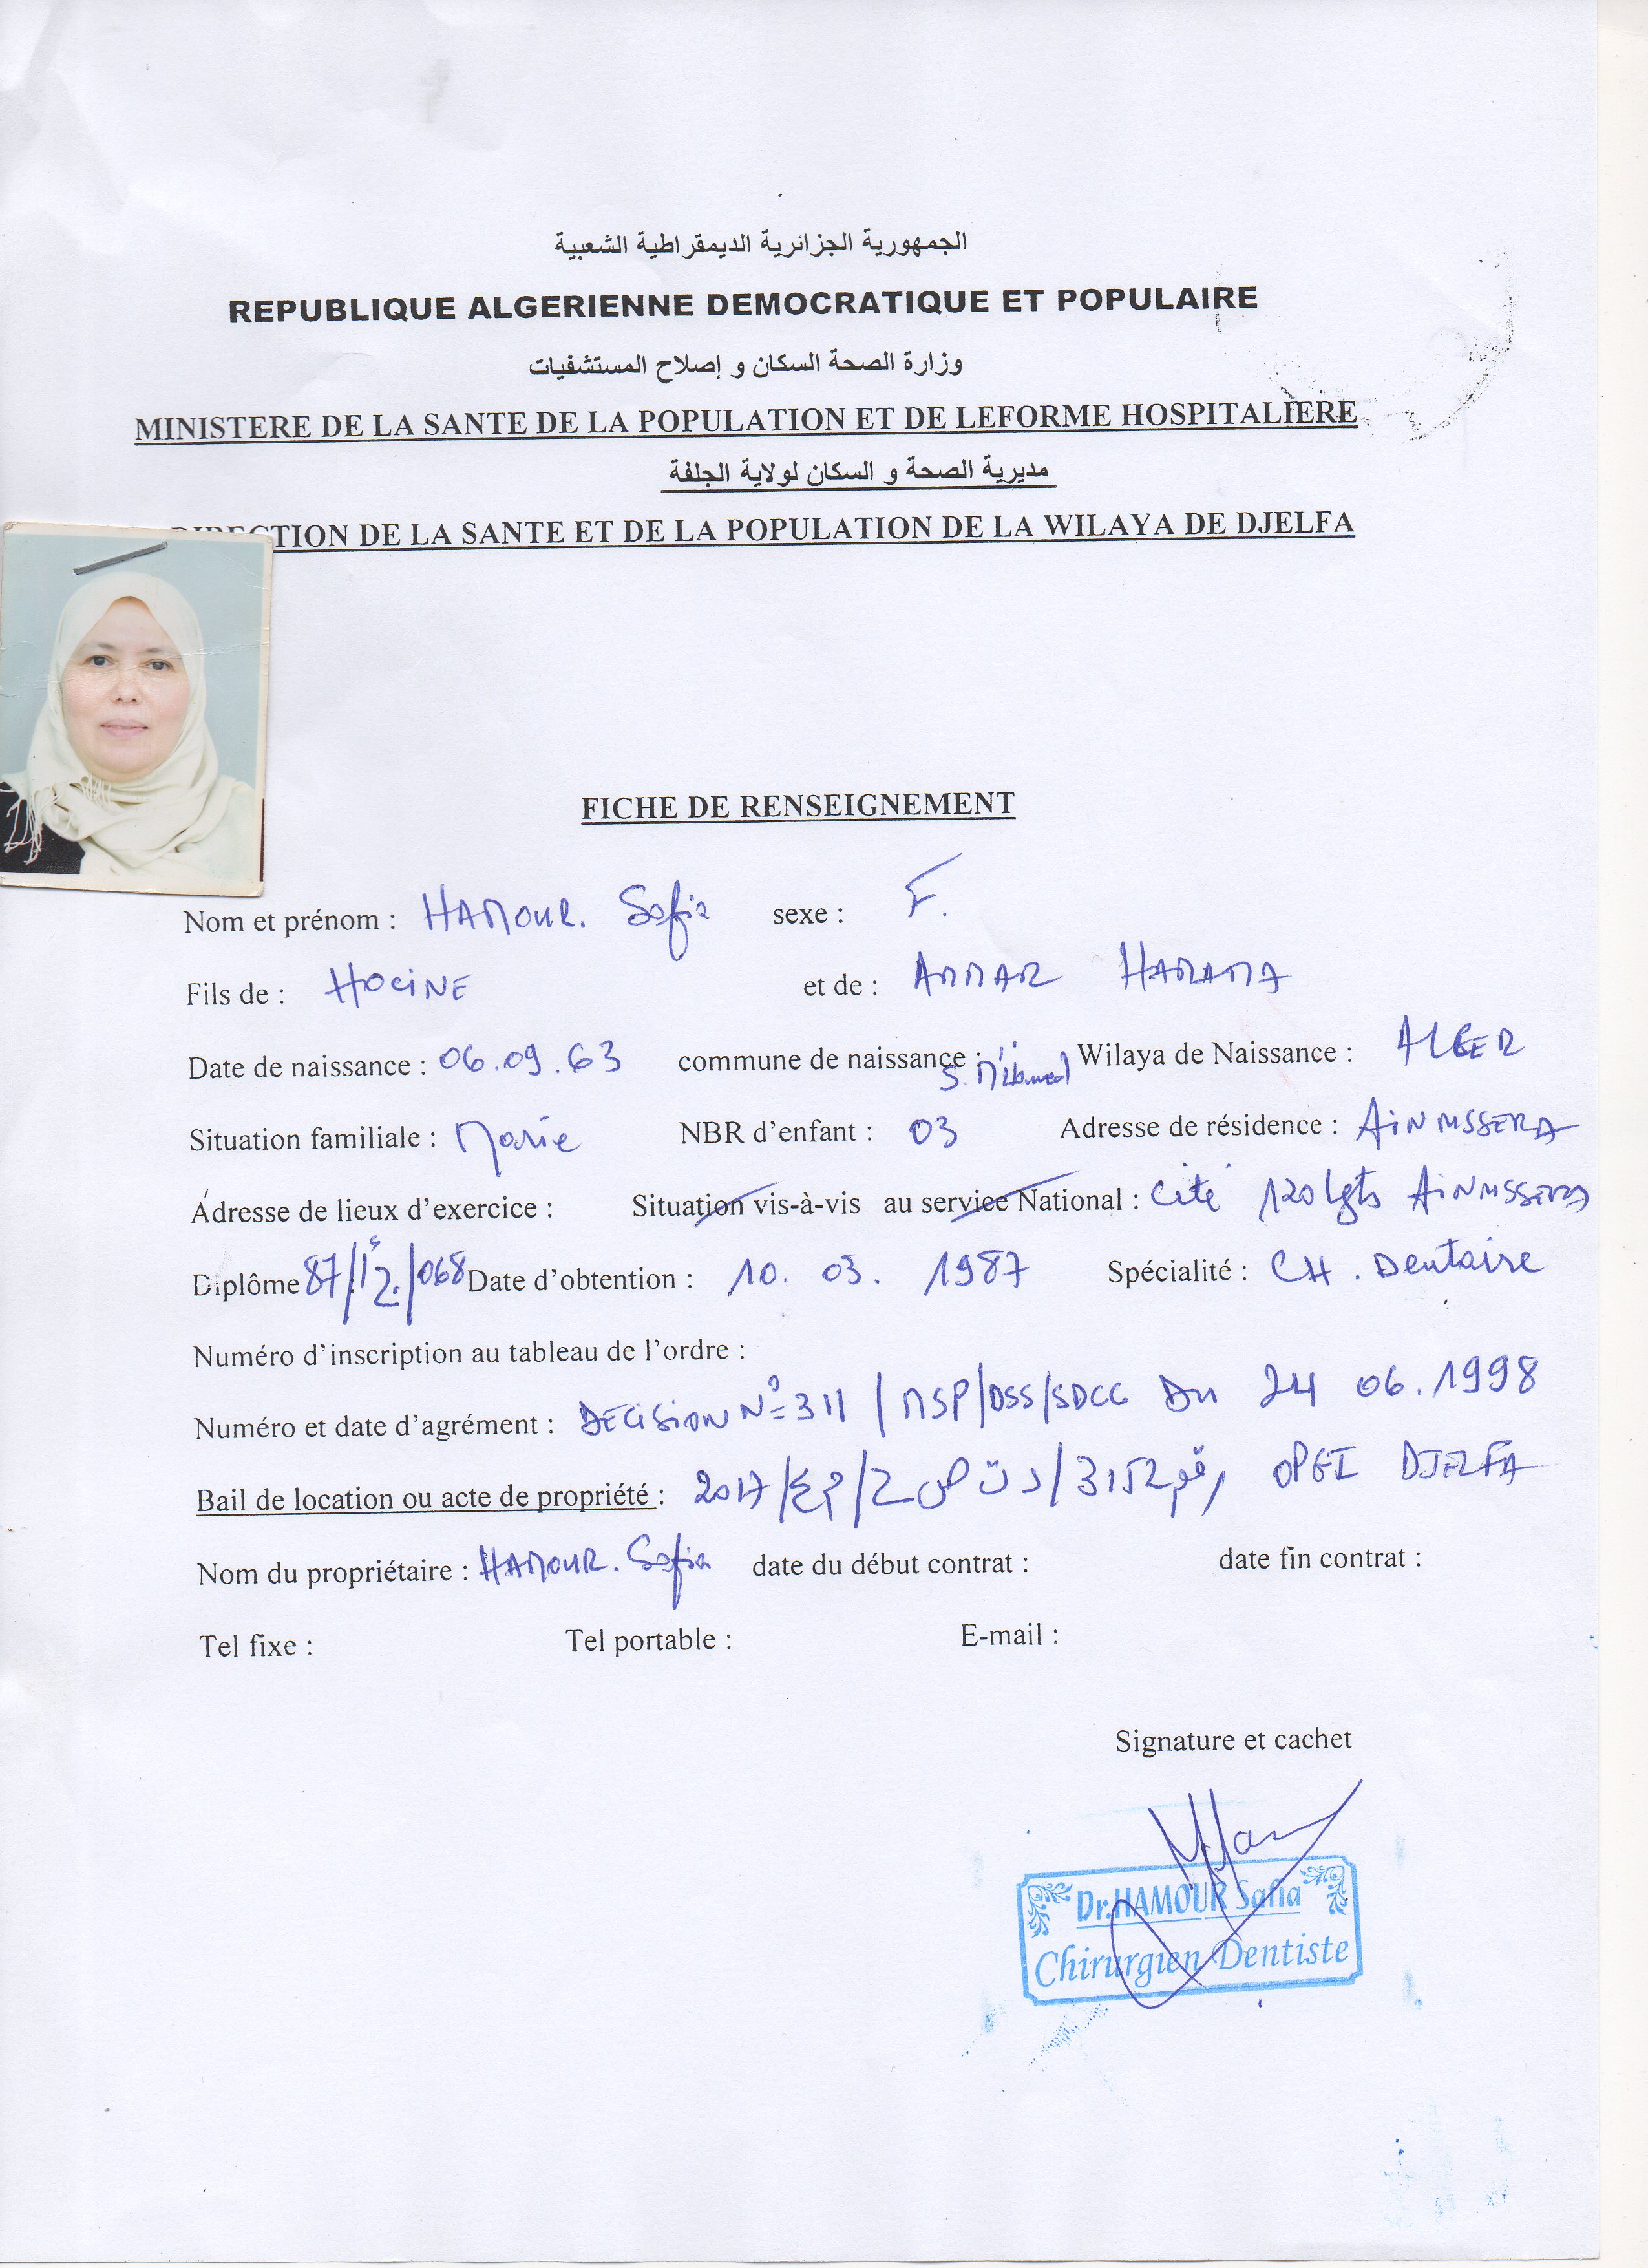 الجمهورية الجزائرية الديمقراطية الشعبية
REPUBLIQUE ALGERIENNE DEMOCRATIQUE ET POPULAIRE
وزارة الصحة السكان و إصلاح المستشفيات
MINISTERE DE LA SANTE DE LA POPULATION ET DE LEFORME HOSPITALIERE
مديرية الصحة و السكان لولاية الجلفة
DIRECTION DE LA SANTE ET DE LA POPULATION DE LA WILAYA DE DJELFA
FICHE DE RENSEIGNEMENT
Nom et prénom : HAMOUR. Safia sexe : F.
Fils de : HOCINE et de : AMMAR HAMAMA
Date de naissance : 06.09.63 commune de naissance : S. M'hamed Wilaya de Naissance : ALGER
Situation familiale : Marie NBR d'enfant : 03 Adresse de résidence : AIN MSSERA
Adresse de lieux d'exercice : Situation vis-à-vis au service National : cité 120 lgts AIN MSSERA
Diplôme 87/ /068 Date d'obtention : 10. 03. 1987 Spécialité : CH. Dentaire
Numéro d'inscription au tableau de l'ordre :
Numéro et date d'agrément : DECISION N° 311 / MSP/DSS/SDCC Du 24 06.1998
Bail de location ou acte de propriété : رقم 3152/ د ت ص ح/ م ع/ 2017 OPGI DJELFA
Nom du propriétaire : HAMOUR. Safia date du début contrat : date fin contrat :
Tel fixe : Tel portable : E-mail :
Signature et cachet
Dr.HAMOUR Safia
Chirurgien Dentiste